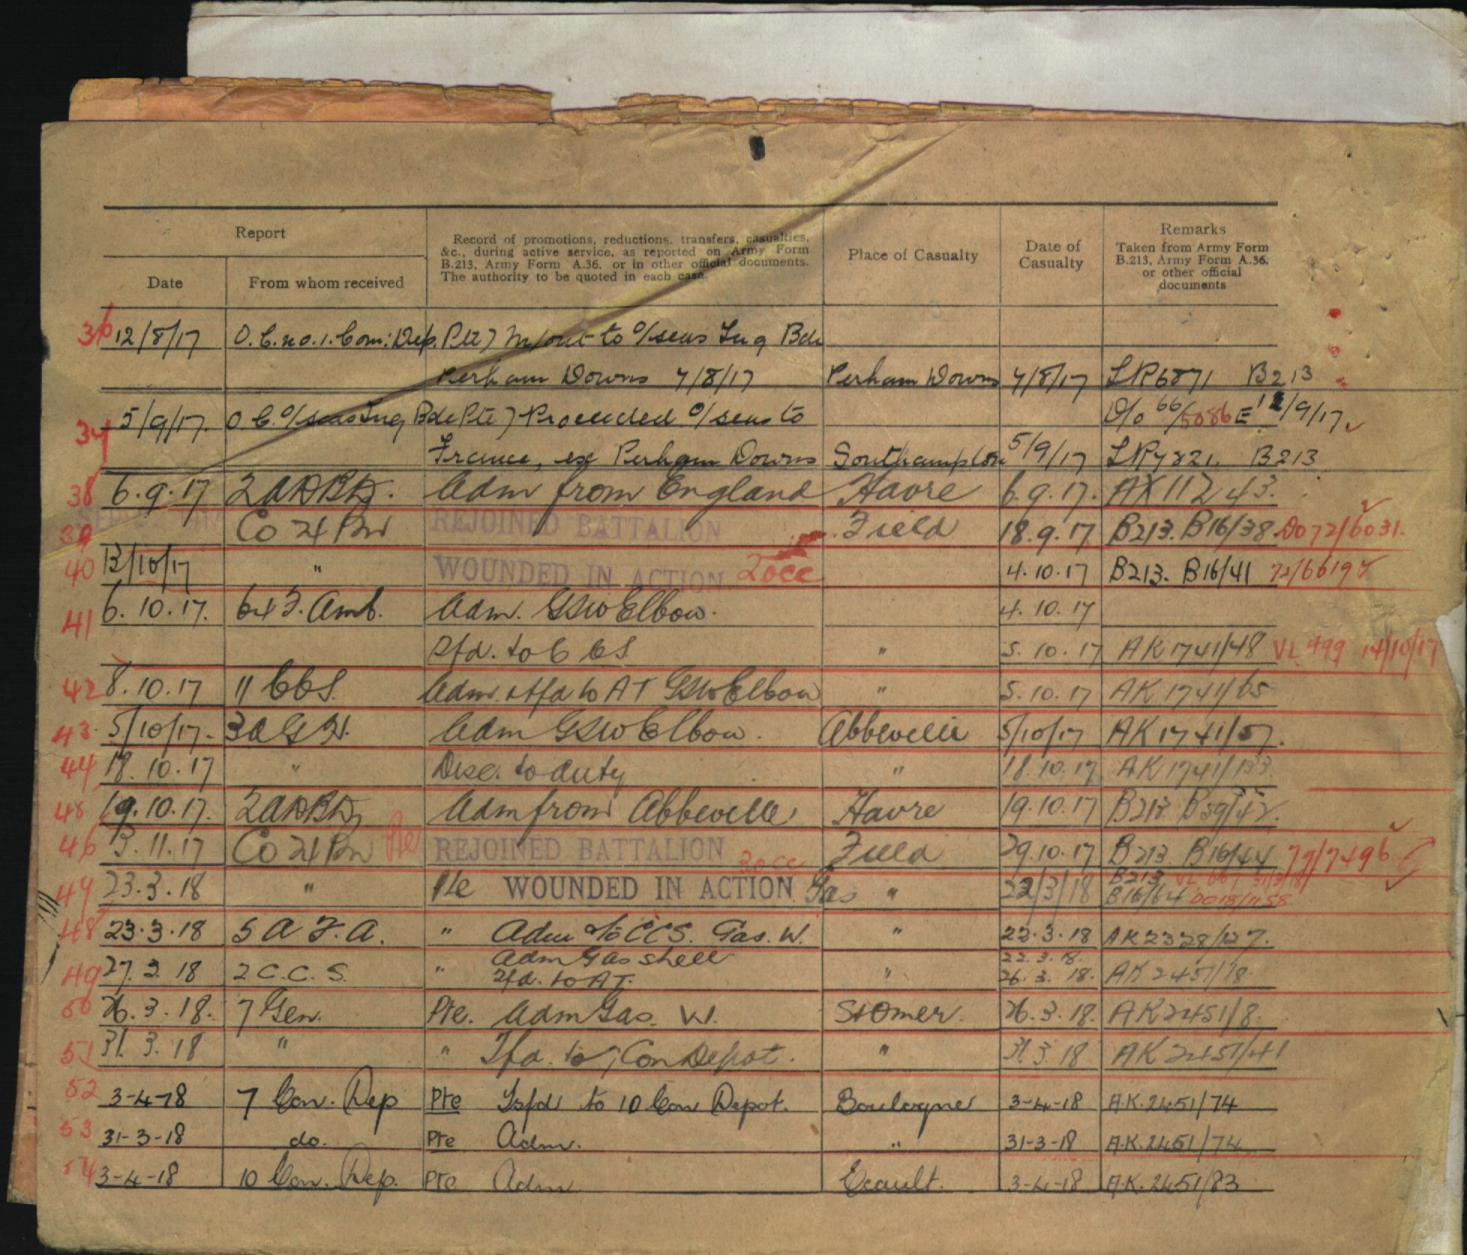 Report
Record of promotions, reductions, transfers, casualties,
&c., during active service, as reported on Army Form
B.213, Army Form A.36, or in other official documents.
The authority to be quoted in each case.
Place of Casualty
Date of
Casualty
Remarks
Taken from Army Form
B.213, Army Form A.36,
or other official
documents
Date
From whom received
36 12/8/17 O.C. no.1. Com: Dep. Pte) M/out to O/seas Trg Bde
Perham Downs 7/8/17 Perham Downs 7/8/17 LR6871 B213
37 5/9/17. O C O/seas Trg Bde Pte) Proceeded O/seas to D/o 66/5086 E 12/9/17
France, ex Perham Downs Southampton 5/9/17 LR7821 B213
38 6.9.17 2ADBD. Adm from England Havre 6.9.17. AK 11243.
39 Co 24 Bn REJOINED BATTALION Field 18.9.17 B213. B16/38 DO72/6031.
40 13/10/17 " WOUNDED IN ACTION 2occ 4.10.17 B213. B16/41 72/6619
41 6.10.17. 6 F. Amb. Adm. GSW Elbow. 4.10.17
Tfd. to C CS " 5.10.17 AK1741/48 VL 999 14/10/17
42 8.10.17 11 CCS. Adm & tfd to AT GSW Elbow " 5.10.17 AK1741/65
43. 5/10/17. 3AGH. Adm GSW Elbow. Abbeville 5/10/17 AK1741/57.
44 18.10.17 " Disc. to duty " 18.10.17 AK1741/133
45 19.10.17. 2ADBD, Adm from Abbeville Havre 19.10.17 B213 B59/42.
46 3.11.17 Co 24 Bn REJOINED BATTALION 3occ Field 29.10.17 B213 B16/44 77/7496
47 23.3.18 " Pte WOUNDED IN ACTION Gas " 22/3/18 B213 B16/64
48 23.3.18 5 A.F.A. " Adm to CCS. Gas. W. " 22.3.18 AK2328/127.
49 27.3.18 2 C.C.S. " Adm Gas shell 22.3.18.
Tfd. to AT. " 26.3.18. AK2451/18
50 26.3.18. 7 Gen. Pte. Adm Gas. W. St Omer. 26.3.18. AK2451/8.
51 31.3.18 " " Tfd. to 7 Con Depot. " 31.3.18 AK2451/41
52 3-4-18 7 Con. Dep Pte Tsfd to 10 Con Depot. Boulogne 3-4-18 A.K.2451/74
53 31-3-18 do. Pte Adm. " 31-3-18 A.K.2451/74
54 3-4-18 10 Con. Dep. Pte Adm Ecault. 3-4-18 A.K.2451/83